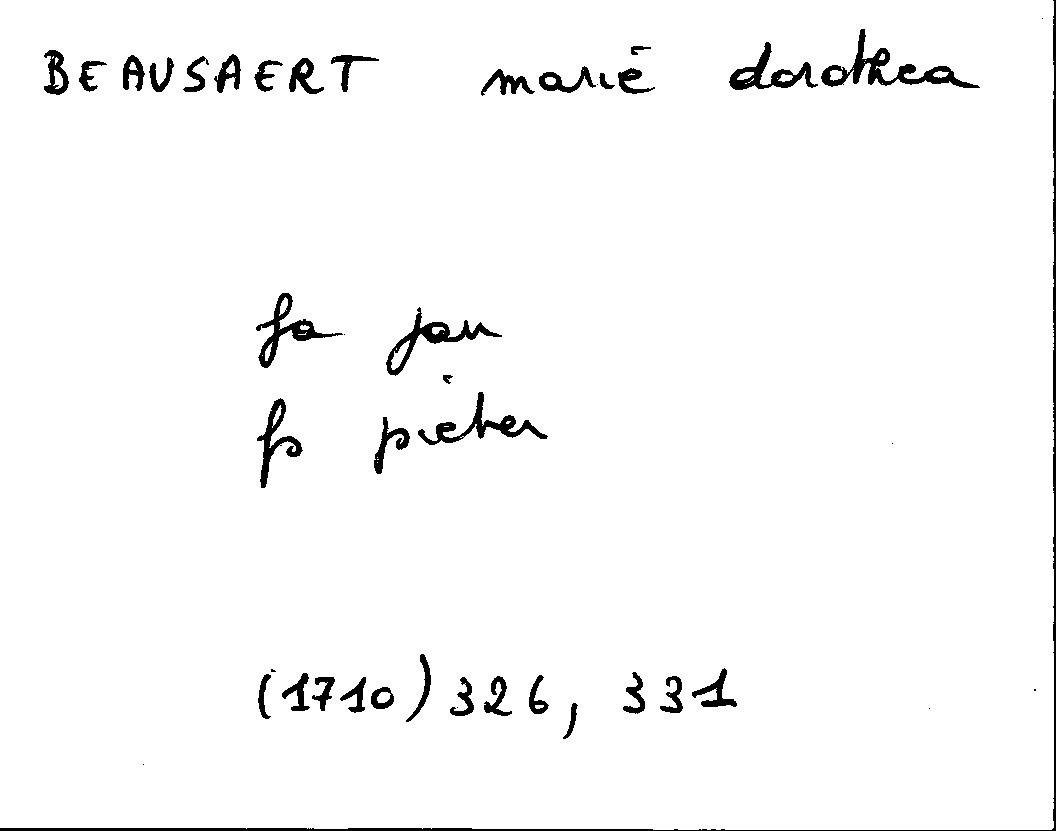 BEAUSAERT marie dorothea
fa jan
fs pieter
(1710) 326, 331